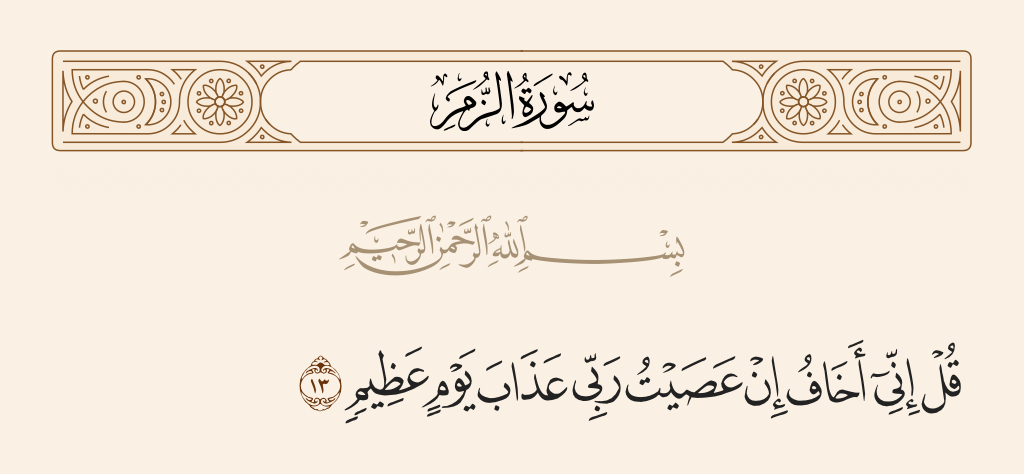 سُورَةُ الزُّمَرِ
بِسْمِ ٱللَّهِ ٱلرَّحْمَٰنِ ٱلرَّحِيمِ
قُلْ إِنِّيٓ أَخَافُ إِنْ عَصَيْتُ رَبِّي عَذَابَ يَوْمٍ عَظِيمٍ ١٣